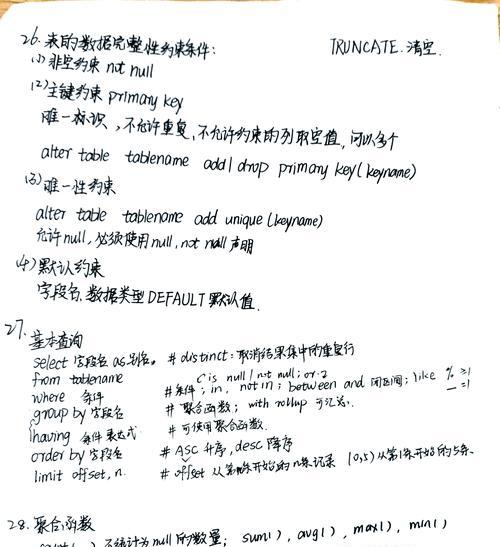 26. 表的数据完整性约束条件:
TRUNCATE. 清空.
(1) 非空约束 not null
(2) 主键约束 primary key
唯一标识, 不允许重复, 不允许约束的列取空值, 可以多个
alter table tablename add | drop primary key (keyname)
(3) 唯一性约束
alter table tablename add unique (keyname)
允许null, 必须使用null, not null 声明
(4) 默认约束
字段名 数据类型 DEFAULT 默认值.
27. 基本查询
select 字段名 as 别名. # distinct: 取消结果集中的重复行
from tablename is null / not null; or
where 条件 # 条件; in, not in; between and 闭区间; like % ≥1 _ =1
group by 字段名 # 聚合函数; with rollup 可汇总.
having 条件表达式 # 可使用聚合函数.
order by 字段名 # ASC 升序, desc 降序
limit offset, n. # offset 从第 条开始的n条记录 (0,5) 从第1条开始的5条.
28. 聚合函数
不统计为null的数量; sum(), avg(), max(), min()